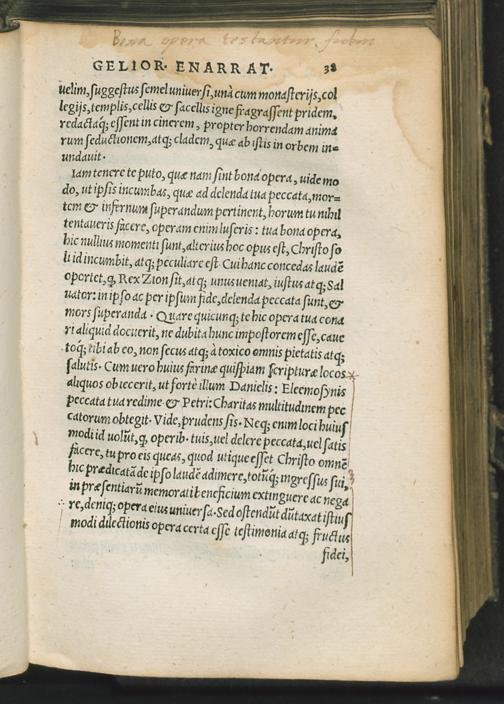 Bona opera testantur fidem
GELIOR· ENARRAT· 38
uelim, suggestus semel uniuersi, unà cum monasterijs, col
legijs, templis, cellis & sacellis igne fragrassent pridem,
redactaq́; essent in cinerem, propter horrendam anima
rum seductionem, atq; cladem, quæ ab istis in orbem in=
undauit·
Iam tenere te puto, quæ nam sint bona opera, uide mo
do, ut ipsis incumbas, quæ ad delenda tua peccata, mor=
tem & infernum superandum pertinent, horum tu nihil
tentaueris facere, operam enim luseris : tua bona opera,
hic nullius momenti sunt, alterius hoc opus est, Christo so
li id incumbit, atq; peculiare est Cui hanc concedas laudē
oportet, q, Rex Zion sit, atq; unus ueniat, iustus atq; Sal
uator: in ipso ac per ipsum fide, delenda peccata sunt, &
mors superanda · Quare quicunq; te hic opera tua cona
ri aliquid docuerit, ne dubita hunc impostorem esse, caue
toq́; tibi ab eo, non secus atq; à toxico omnis pietatis atq;
salutis· Cum uero huius farinæ quispiam scripturæ locos
aliquos obiecerit, ut fortè illum Danielis : Eleemosynis
peccata tua redime & Petri: Charitas multitudinem pec
catorum obtegit· Vide, prudens sis· Neq; enim loci huius
modi id uolūt, q, operib· tuis, uel delere peccata, uel satis
facere, tu pro eis queas, quod utique esset Christo omnē
hic prædicatā de ipso laudē adimere, totūq́; ingressus sui,
in præsentiarū memorati beneficium extinguere ac nega
re, deniq; opera eius uniuersa· Sed ostendūt dūtaxat istius
modi dilectionis opera certa esse testimonia atq; fructus
fidei,